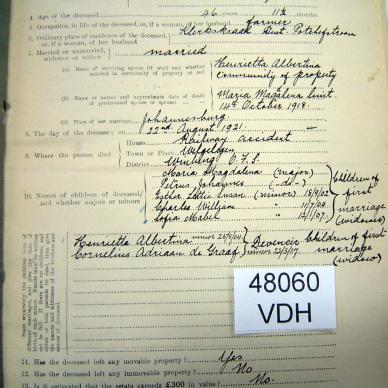 4. Age of the deceased 46 years 11th months
5. Occupation in life of the deceased, or, if a woman, of her husband farmer
6. Ordinary place of residence of the deceased, or, if a woman, of her husband Klerkskraal Dist. Potchefstroom
7. Married or unmarried, widower or widow married
(a) Name of surviving spouse (if any) and whether married in community of property or not Henrietta Albertina
Community of property
(b) Name or names and approximate date of death of predeceased spouse or spouses Maria Magdalena Smit
14th October 1918.
(c) Place of last marriage Johannesburg
8. The day of the decease: on 22nd August 1921.
9. Where the person died
House Railway accident
Town or Place Welgelegen
District Winburg O.F.S.
10. Names of children of deceased, and whether majors or minors
Maria Magdalena (major)
Petrus Johannes (-do-)
Esther Lottie Susan (minor) 18/9/02
Charles William " 11/7/04
Sofia Mabel " 12/1/07
Children of first marriage (widower)
Henrietta Albertina minor
Cornelius Adriaan de Graaf minor
Children of first marriage (widow)
48060
VDH
11. Has the deceased left any movable property? Yes
12. Has the deceased left any immovable property? No.
13. Is it estimated that the estate exceeds £300 in value? No.